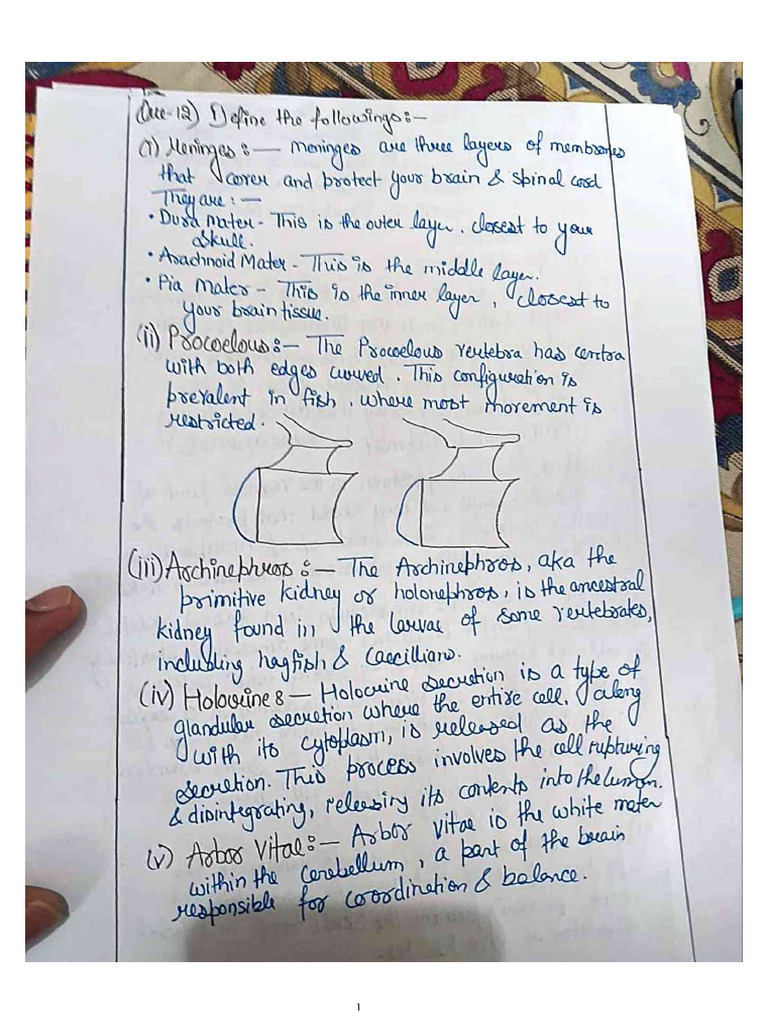 Que-12) Define the followings:-
(i) Meninges:— Meninges are three layers of membranes
that cover and protect your brain & spinal cord
They are:—
• Dura mater- This is the outer layer, closest to your
skull.
• Arachnoid Mater- This is the middle layer.
• Pia Mater- This is the inner layer, closest to
your brain tissue.
(ii) Procoelous:- The Procoelous vertebra has centra
with both edges curved. This configuration is
prevalent in fish, where most movement is
restricted.
(iii) Archinephros:- The Archinephros, aka the
primitive kidney or holonephros, is the ancestral
kidney found in the larvae of some vertebrates,
including hagfish & Caecillians.
(iv) Holocrine:- Holocrine secretion is a type of
glandular secretion where the entire cell, along
with its cytoplasm, is released as the
secretion. This process involves the cell rupturing
& disintegrating, releasing its contents into the lumen.
(v) Arbor Vitae:- Arbor vitae is the white mater
within the cerebellum, a part of the brain
responsible for coordination & balance.
1